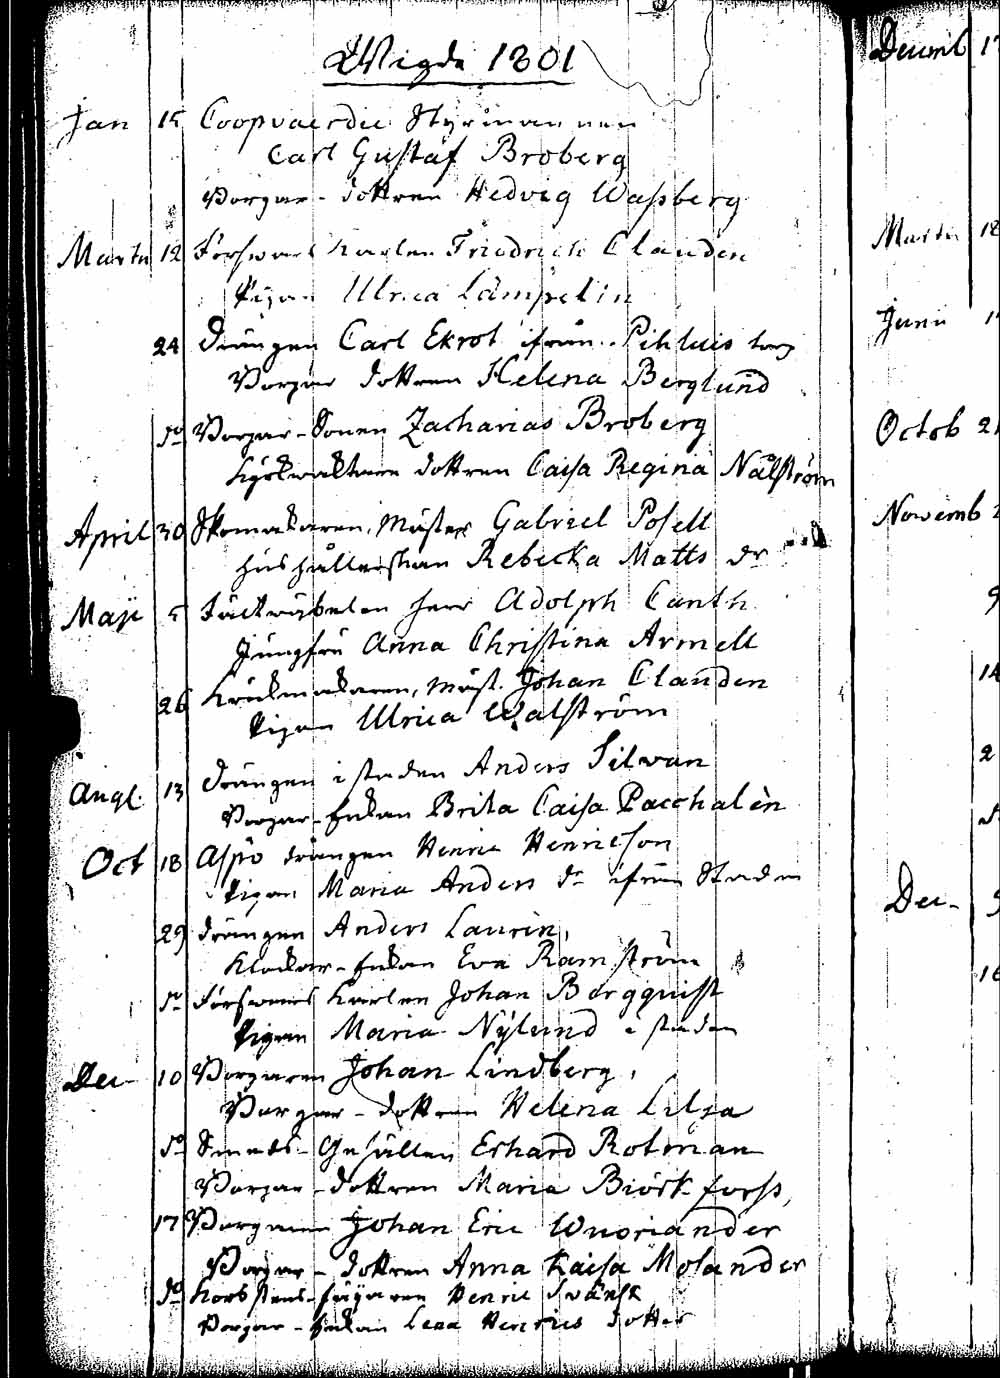 Wigde 1801
Jan 15 Coopvaerdie Styrmannen
Carl Gustaf Broberg
Borgar-dottren Hedvig Waßberg
Martii 12 Förswars Karlen Friedrich Clauden
Pigan Ulrica Lampelin
24 Drängen Carl Ekrot ifrån Pihluis
Borgar dottren Helena Berglund
do Borgar-Sonen Zacharias Broberg
dottren Caisa Regina Nålström
April 30 Skomakaren, Mäster Gabriel Posell
Hushållerskan Rebecka Matts dr
Maji 5 Fältwäbelen Herr Adolph Canth
Jungfru Anna Christina Armell
26 Krukmakaren, Mäst. Johan Clauden
Pigan Ulrica Walström
Augt. 13 Drängen i staden Anders Silwan
Borgar-Enkan Brita Caisa Pacchalèn
Oct 18 Aspö drängen Henric Henricson
Pigan Maria Anders dr ifrån Staden
29 Drängen Anders Laurin,
Klockar-Enkan Eva Ramström
do Förswars Karlen Johan Bergquist
Pigan Maria Nylund i staden
Dec 10 Borgaren Johan Lindberg,
Borgar-dottren Helena Lilja
do Smeds-Gesällen Erhard Rotman
Borgar-dottren Maria Biörkforss,
17 Borgaren Johan Eric Wuoriander
Borgar-dottren Anna Kaisa Molander
do Skorstens-fäjaren Henric Svänsk
Borgar-Enkan Lena Henrics dotter
Decemb 1
Martii 18
Junii 1
Octob 2
Novemb
9
14
2
Dec-
16